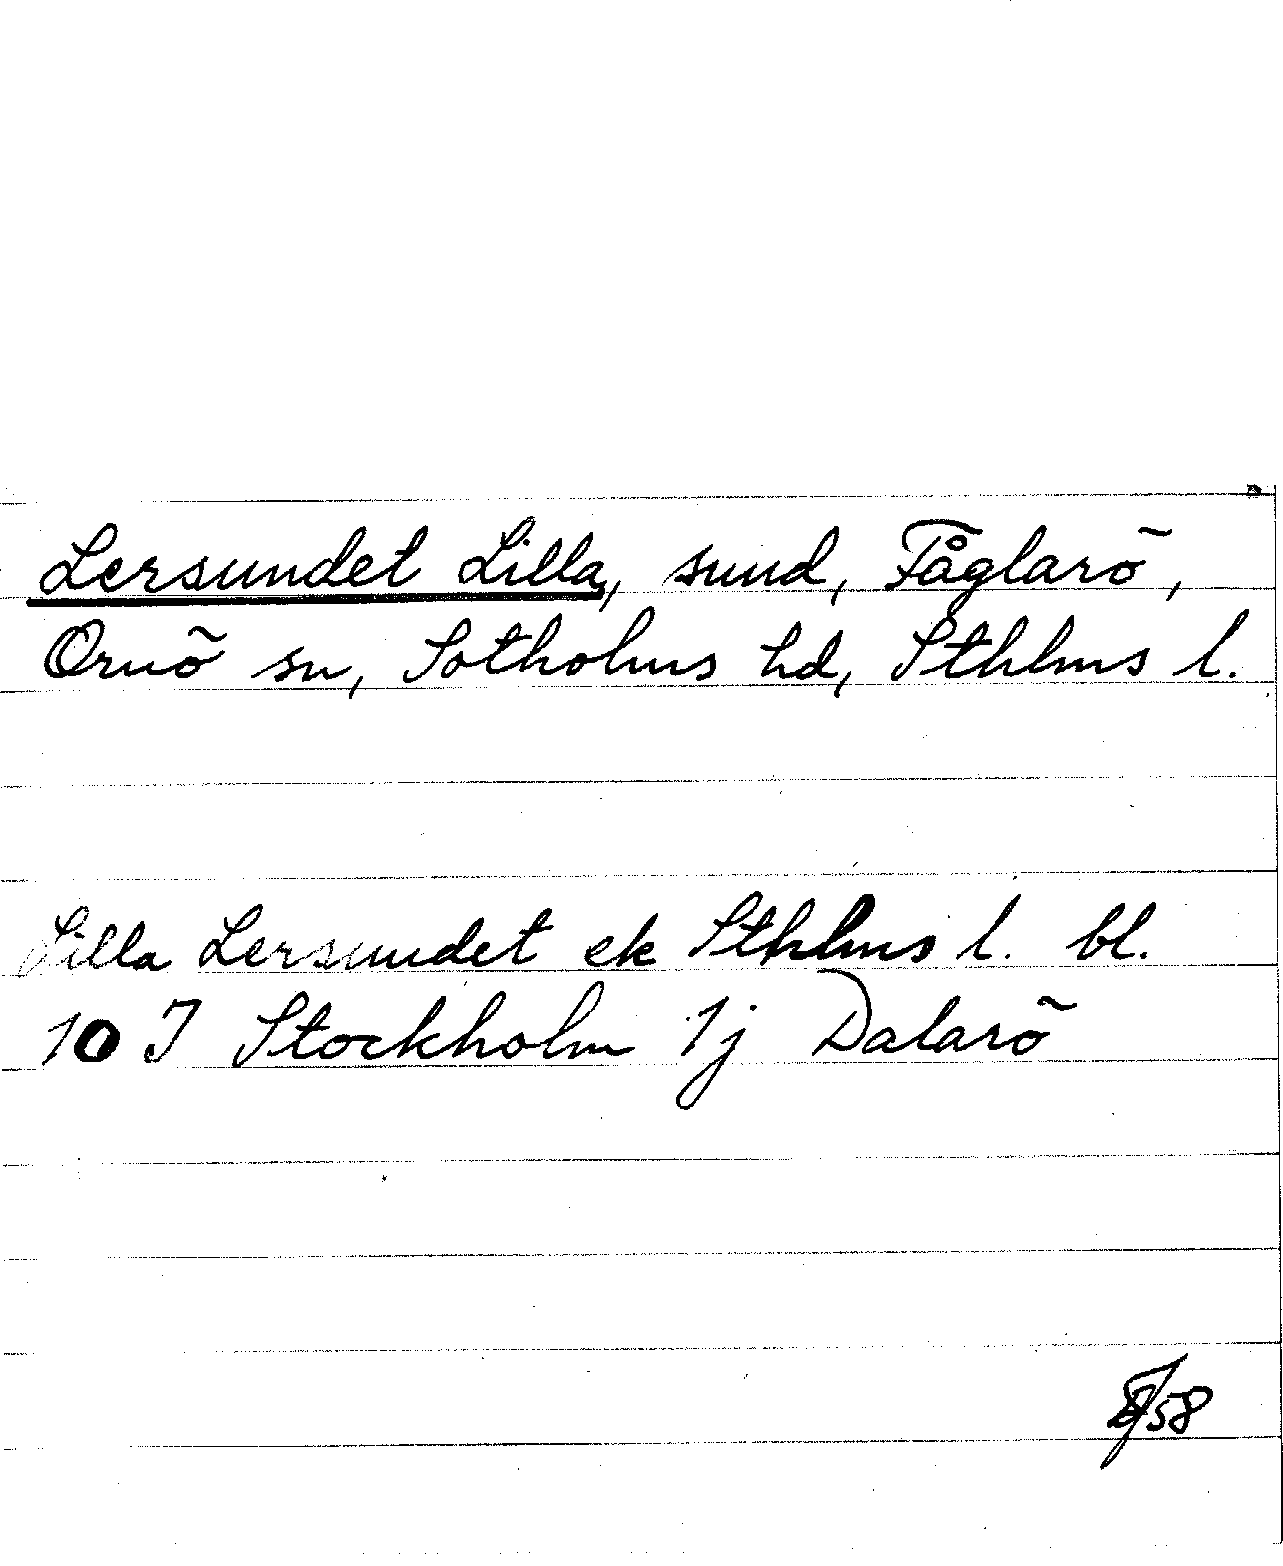 Lersundet Lilla, sund, Fåglarö,
Ornö sn, Sotholms hd, Sthlms l.
Lilla Lersundet ek Sthlms l. bl.
10 J Stockholm 1j Dalarö
/58